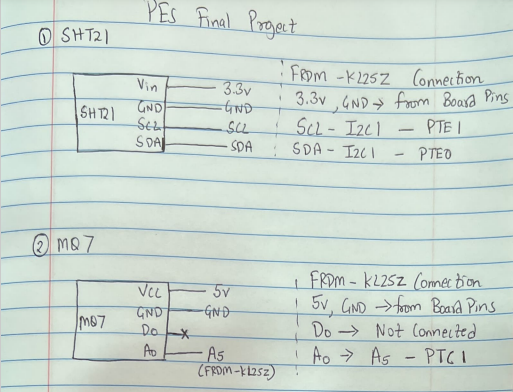 PES Final Project
① SHT21
SHT21
Vin 3.3v
GND GND
SCL SCL
SDA SDA
FRDM-KL25Z Connection
3.3v, GND → from Board Pins
SCL - I2C1 - PTE1
SDA - I2C1 - PTE0
② MQ7
MQ7
VCC 5v
GND GND
D0 x
A0 A5
(FRDM-KL25Z)
FRDM-KL25Z Connection
5v, GND → from Board Pins
D0 → Not Connected
A0 → A5 - PTC1